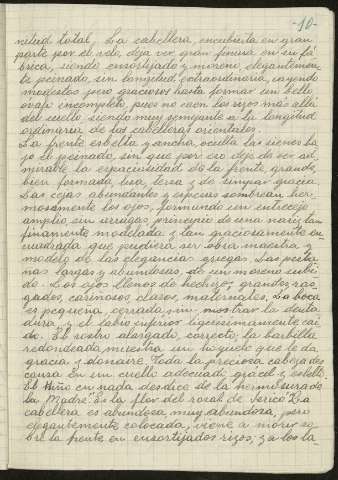 -10-
nitud total. La cabellera, encubierta en gran
parte por el velo, deja ver gran finura en su fá-
brica, siendo ensortijado y moreno, elegantemen-
te peinado, sin longitud extraordinaria, cayendo
modestos pero graciosos hasta formar un bello
ovalo incompleto, pues no caen los rizos más allá
del cuello, siendo muy semejante a la longitud
ordinaria de las cabelleras orientales.
La frente esbelta y ancha, oculta las sienes ba-
jo el peinado, sin que por eso deje de ser ad-
mirable la espaciosidad de la frente, grande,
bien formada, lisa, tersa y de limpia gracia.
Las cejas abundantes y espesas sombrean her-
mosamente los ojos, formando un entrecejo
amplio, sin arrugas, principio de una nariz tan
finamente modelada y tan graciosamente en-
cuadrada que pudiera ser obra maestra y
modelo de las elegancias griegas. Las pesta-
ñas largas y abundosas, de un moreno subi-
do. Los ojos llenos de hechizo, grandes, ras-
gados, cariñosos, claros, maternales. La boca
es pequeña, cerrada, sin mostrar la denta-
dura, y el labio inferior ligerisimamente caí-
do. El rostro alargado, correcto, la barbilla
redondeada, muestra un hoyuelo que le da
gracia y donaire. Toda la preciosa cabeza des-
cansa en un cuello adecuado, grácil y esbelto.
El Niño en nada desdice de la hermosura de
la Madre. "Es la flor del rosal de Jericó". La
cabellera es abundosa, muy abundosa, pero
elegantemente colocada, viene a morir so-
bre la frente en ensortijados rizos, y a los la-